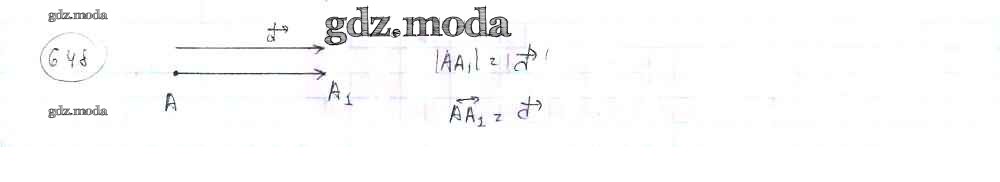 gdz.moda
gdz.moda
648
a⃗
|AA₁| = |a⃗|
A
A₁
AA₁⃗ = a⃗
gdz.moda